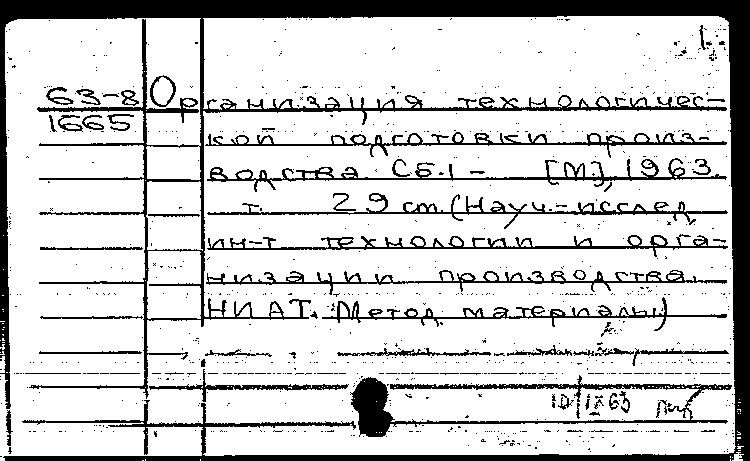 63-8
1665
Организация технологичес-
кой подготовки произ-
водства. Сб. 1 - [М], 1963.
т. 29 см. (Науч.-исслед
ин-т технологии и орга-
низации производства.
НИАТ. Метод. материалы)
10/IX 63